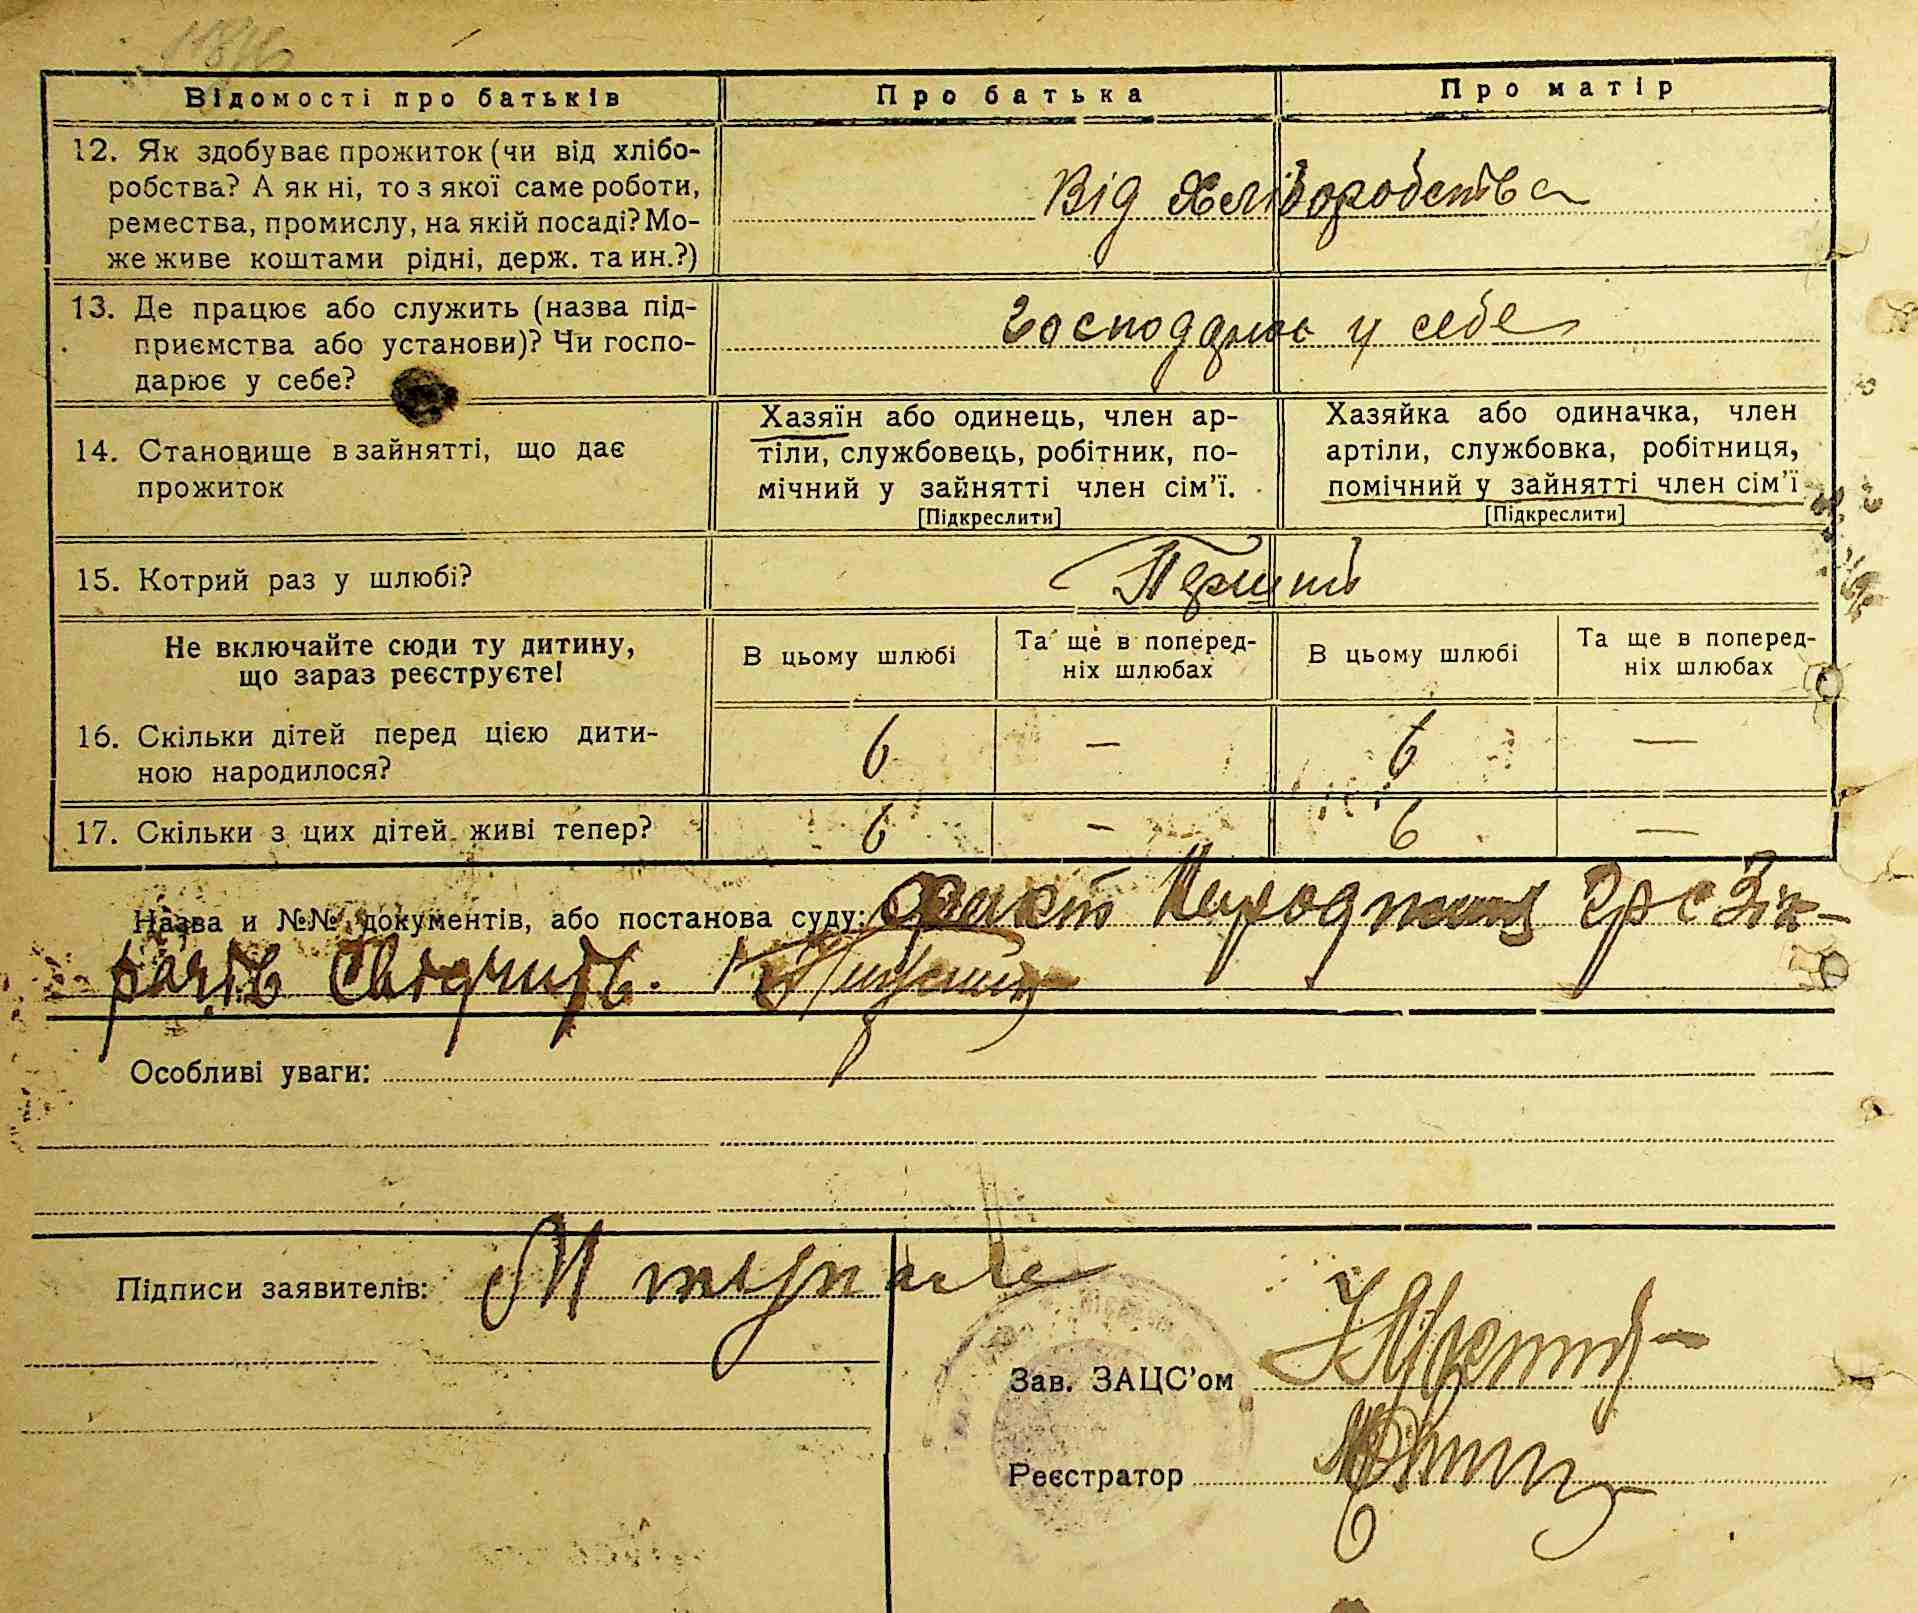 Відомості про батьків Про батька Про матір
12. Як здобуває прожиток (чи від хлібо-
робства? А як ні, то з якої саме роботи,
ремества, промислу, на якій посаді? Мо-
же живе коштами рідні, держ. та ин.?)
Від Хліборобства
13. Де працює або служить (назва під-
приємства або установи)? Чи госпо-
дарює у себе?
Господарює у себе
14. Становище в зайнятті, що дає
прожиток
Хазяїн або одинець, член ар-
тіли, службовець, робітник, по-
мічний у зайнятті член сім'ї.
[Підкреслити]
Хазяйка або одиначка, член
артіли, службовка, робітниця,
помічний у зайнятті член сім'ї
[Підкреслити]
15. Котрий раз у шлюбі?
Перший
Не включайте сюди ту дитину,
що зараз реєструєте!
В цьому шлюбі
Та ще в поперед-
ніх шлюбах
В цьому шлюбі
Та ще в поперед-
ніх шлюбах
16. Скільки дітей перед цією дити-
ною народилося?
6 — 6 —
17. Скільки з цих дітей живі тепер?
6 — 6 —
Назва и №№ документів, або постанова суду: факт
Особливі уваги:
Підписи заявителів:
Зав. ЗАЦС'ом
Реєстратор